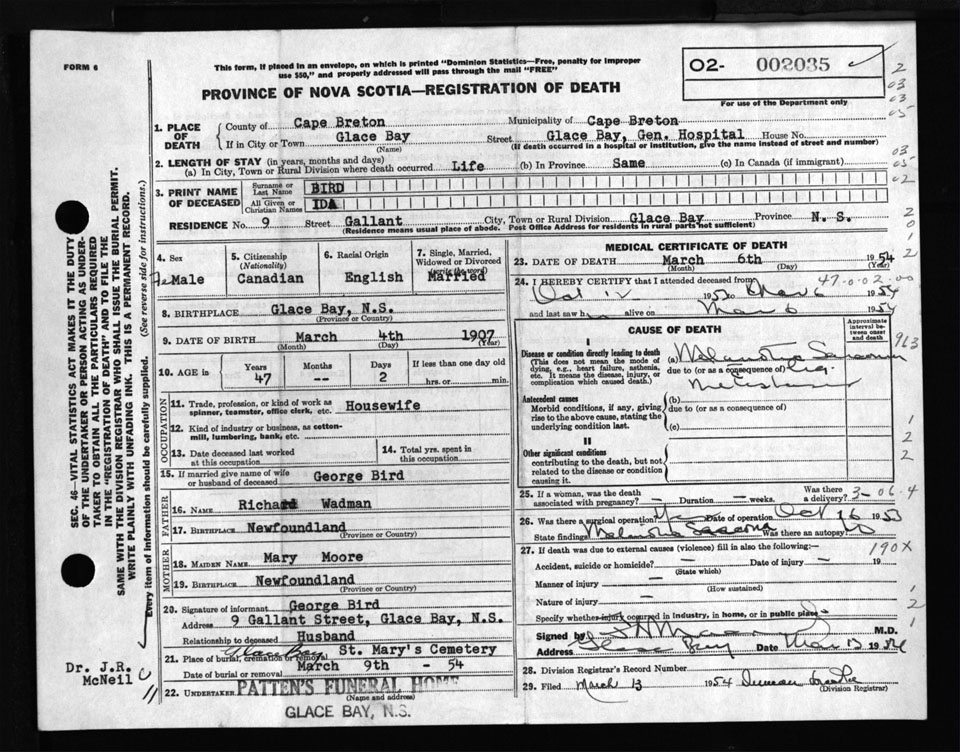 FORM 6
This form, if placed in an envelope, on which is printed "Dominion Statistics—Free, penalty for improper
use $50," and properly addressed will pass through the mail "FREE"
O2- 002035
For use of the Department only
PROVINCE OF NOVA SCOTIA—REGISTRATION OF DEATH
1. PLACE OF DEATH
County of Cape Breton Municipality of Cape Breton
If in City or Town Glace Bay Street Glace Bay, Gen. Hospital House No.
(Name) (If death occurred in a hospital or institution, give the name instead of street and number)
2. LENGTH OF STAY (in years, months and days)
(a) In City, Town or Rural Division where death occurred Life (b) In Province Same (c) In Canada (if immigrant)
3. PRINT NAME OF DECEASED
Surname or Last Name BIRD
All Given or Christian Names IDA
RESIDENCE No. 9 Street Gallant City, Town or Rural Division Glace Bay Province N. S.
(Residence means usual place of abode. Post Office Address for residents in rural parts not sufficient)
4. Sex 5. Citizenship (Nationality) 6. Racial Origin 7. Single, Married, Widowed or Divorced (write the word)
FeMale Canadian English Married
8. BIRTHPLACE Glace Bay, N.S.
(Province or Country)
9. DATE OF BIRTH March 4th 1907
(Month) (Day) (Year)
10. AGE in Years Months Days If less than one day old
47 -- 2 hrs. or min.
OCCUPATION
11. Trade, profession, or kind of work as spinner, teamster, office clerk, etc. Housewife
12. Kind of industry or business, as cotton-mill, lumbering, bank, etc.
13. Date deceased last worked at this occupation
14. Total yrs. spent in this occupation
15. If married give name of wife or husband of deceased George Bird
FATHER
16. NAME Richard Wadman
17. BIRTHPLACE Newfoundland
(Province or Country)
MOTHER
18. MAIDEN NAME Mary Moore
19. BIRTHPLACE Newfoundland
(Province or Country)
20. Signature of informant George Bird
Address 9 Gallant Street, Glace Bay, N.S.
Relationship to deceased Husband
21. Place of burial, cremation or removal Glace Bay St. Mary's Cemetery
Date of burial or removal March 9th - 54
22. UNDERTAKER PATTEN'S FUNERAL HOME
(Name and address)
GLACE BAY, N.S.
MEDICAL CERTIFICATE OF DEATH
23. DATE OF DEATH March 6th 1954
(Month) (Day) (Year)
24. I HEREBY CERTIFY that I attended deceased from 47-0-02-00
Oct 12 1953 to Mar 6 1954
and last saw h alive on Mar 6 1954
CAUSE OF DEATH
Approximate interval between onset and death
I
Disease or condition directly leading to death
(This does not mean the mode of dying, e.g., heart failure, asthenia, etc. It means the disease, injury, or complication which caused death.)
(a)
due to (or as a consequence of)
Antecedent causes
Morbid conditions, if any, giving rise to the above cause, stating the underlying condition last.
(b)
due to (or as a consequence of)
(c)
II
Other significant conditions
contributing to the death, but not related to the disease or condition causing it.
25. If a woman, was the death associated with pregnancy? — Duration — weeks. Was there a delivery? 3-06-4
26. Was there a surgical operation? Yes Date of operation Oct 16 1953
State findings Was there an autopsy? No
27. If death was due to external causes (violence) fill in also the following:— 190X
Accident, suicide or homicide? — Date of injury — 19
(State which)
Manner of injury —
(How sustained)
Nature of injury —
Specify whether injury occurred in industry, in home, or in public place
Signed by M.D.
Address Glace Bay Date Mar 13 1954
28. Division Registrar's Record Number
29. Filed March 13 1954
(Division Registrar)
SEC. 46—VITAL STATISTICS ACT MAKES IT THE DUTY
OF THE UNDERTAKER OR PERSON ACTING AS UNDER-
TAKER TO OBTAIN ALL THE PARTICULARS REQUIRED
IN THE "REGISTRATION OF DEATH" AND TO FILE THE
SAME WITH THE DIVISION REGISTRAR WHO SHALL ISSUE THE BURIAL PERMIT.
WRITE PLAINLY WITH UNFADING INK. THIS IS A PERMANENT RECORD.
Every item of information should be carefully supplied. (See reverse side for instructions.)
Dr. J.R.
McNeil